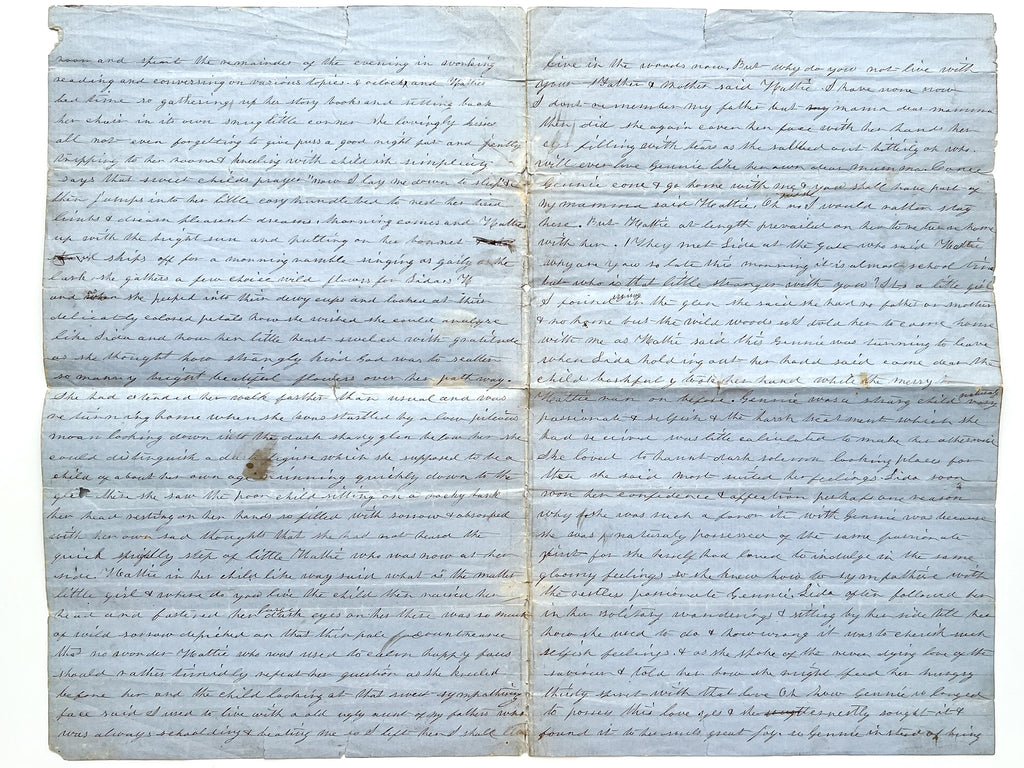 room and spent the remainder of the evening in working
reading and conversing on various topics 8 oclock and Hattie
had time so gathering up her story books and setting back
her chair in its own snug little corner she lovingly kisses
all not even forgetting to give puss a good night pat and gently
tripping to her room & kneeling with child ish simplicity
says that sweet childs prayer "now I lay me down to sleep" &c
then jumps into her little cosy handle bed to rest her tired
limbs & dream pleasant dreams. Morning comes and Hattie
up with the bright sun and putting on her bonnet
skips off for a morning ramble singing as gaily as the
lark she gathers a few choice wild flowers for Sida
and when she peeped into their dewy cups and looked at their
delicately colored petals how she wished she could analyze
like Sida and how her little heart sweled with gratitude
as she thought how strangly kind God was to scatter
so manny bright beatiful flowers over her path way.
She had extended her walk farther than usual and was
re turning home when she was startled by a low piteous
moan looking down into the dark shady glen below her she
could distinguish a dark figure which she supposed to be a
child of about her own age running quickly down to the
glen there she saw the poor child sitting on a rocky bank
her head resting on her hands so filled with sorrow & absorbed
with her own sad thoughts that she had not heard the
quick step of little Hattie who was now at her
side. Hattie in her child like way said what is the matter
little girl & where do you live the child then raised her
head and fastened her large dark eyes on her there was so much
of wild sorrow depicted on that thin pale countenance
that no wonder Hattie who was used to calm happy faces
should rather timidly repeat her question as she kneeled
before her and the child looking at that sweet sympathizing
face said I used to live with a old ugly aunt of my fathers who
was always schoolding & beating me so I left then I shall
live in the woods now. But why do you not live with
your Father & Mother said Hattie I have none now
I dont re member my father but my mama dear mamma
then did she again cover her face with her hands her
eyes filling with tears as she sallied out bitterly oh who
will ever love Gennie like her own dear mumma. Come
Gennie come & go home with me & you shall have part of
my mamma said Hattie. Oh no I would rather stay
here. But Hattie at length prevailed on her to return home
with her. They met Sida at the gate who said Hattie
why are you so late this morning it is almost school time
but who is that little stranger with you? Its a little girl
I found crying in the glen she said she had no father or mother
& no home but the wild woods so I told her to come home
with me as Hattie said this Gennie was turning to leave
when Sida holding out her hand said come dear the
child bashfuly took her hand while the merry
Hattie ran on before. Gennie was a strang child naturaly
passionate & selfish & the harsh treatment which she
had received was little calculated to make her otherwise
She loved to haunt dark solemn looking places for
they she said most suited her feelings. Sida soon
won her confidence & affection perhaps one reason
why she was such a favor ite with Gennie was because
she was naturaly possessed of the same passionate
spirit for she herself had loved to indulge in the same
gloomy feelings so she knew how to sympathize with
the restless passionate Gennie. Sida often followed her
in her solitary wanderings & sitting by her side tell her
how she used to do & how wrong it was to cherish such
selfish feelings. & as she spoke of the never dying love of the
saviour & told her how she might feed her hungry
thirsty spirit with that love Oh how Gennie longed
to possess this love yes & she ernestly sought it &
found it to her souls great joy so Gennie instead of being